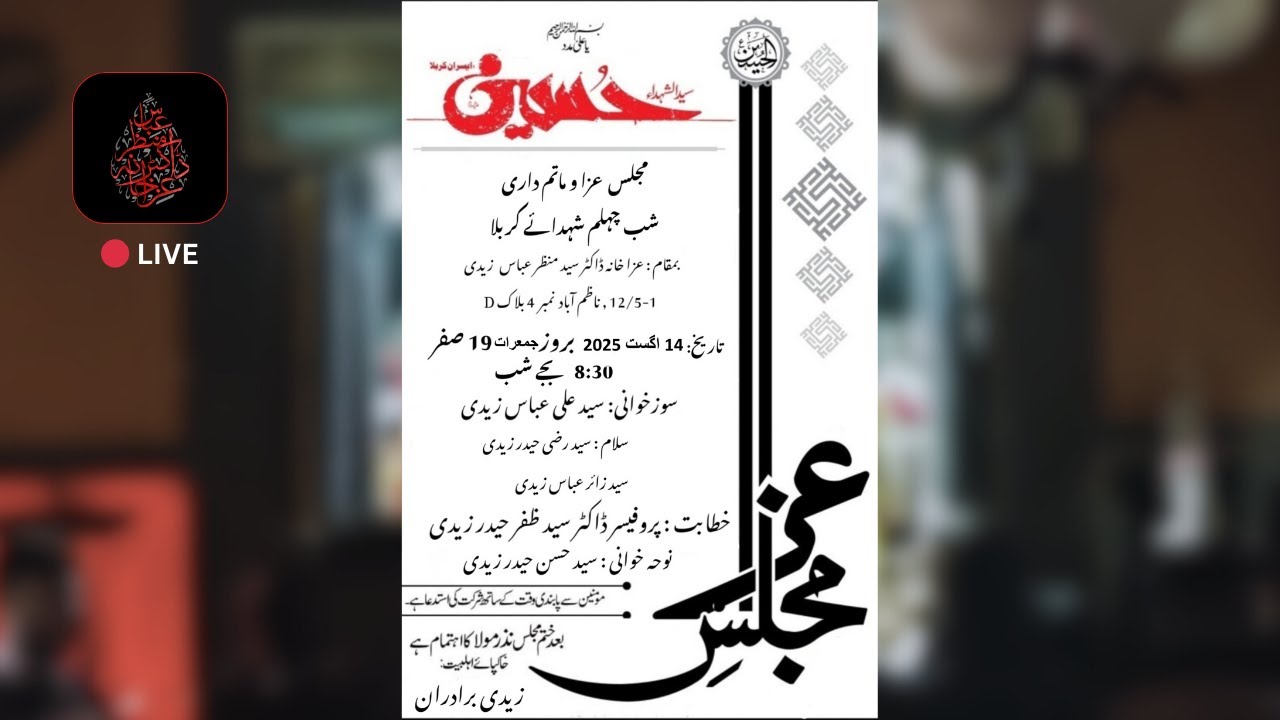 بسم اللہ الرحمن الرحیم
یا علی مدد
سید الشہداء حُسین و اسیران کربلا
مجلس عزا و ماتم داری
شب چہلم شہدائے کربلا
بمقام : عزا خانہ ڈاکٹر سید منظر عباس زیدی
12/5-1 , ناظم آباد نمبر 4 بلاک D
تاریخ: 14 اگست 2025 بروز جمعرات 19 صفر
8:30 بجے شب
سوز خوانی: سید علی عباس زیدی
سلام : سید رضی حیدر زیدی
سید زائر عباس زیدی
خطابت : پروفیسر ڈاکٹر سید ظفر حیدر زیدی
نوحہ خوانی : سید حسن حیدر زیدی
مومنین سے پابندی وقت کے ساتھ شرکت کی استدعا ہے۔
بعد ختم مجلس نذر مولا کا اہتمام ہے
خاکپائے اہلبیت:
زیدی برادران
مجلسِ عزا
LIVE